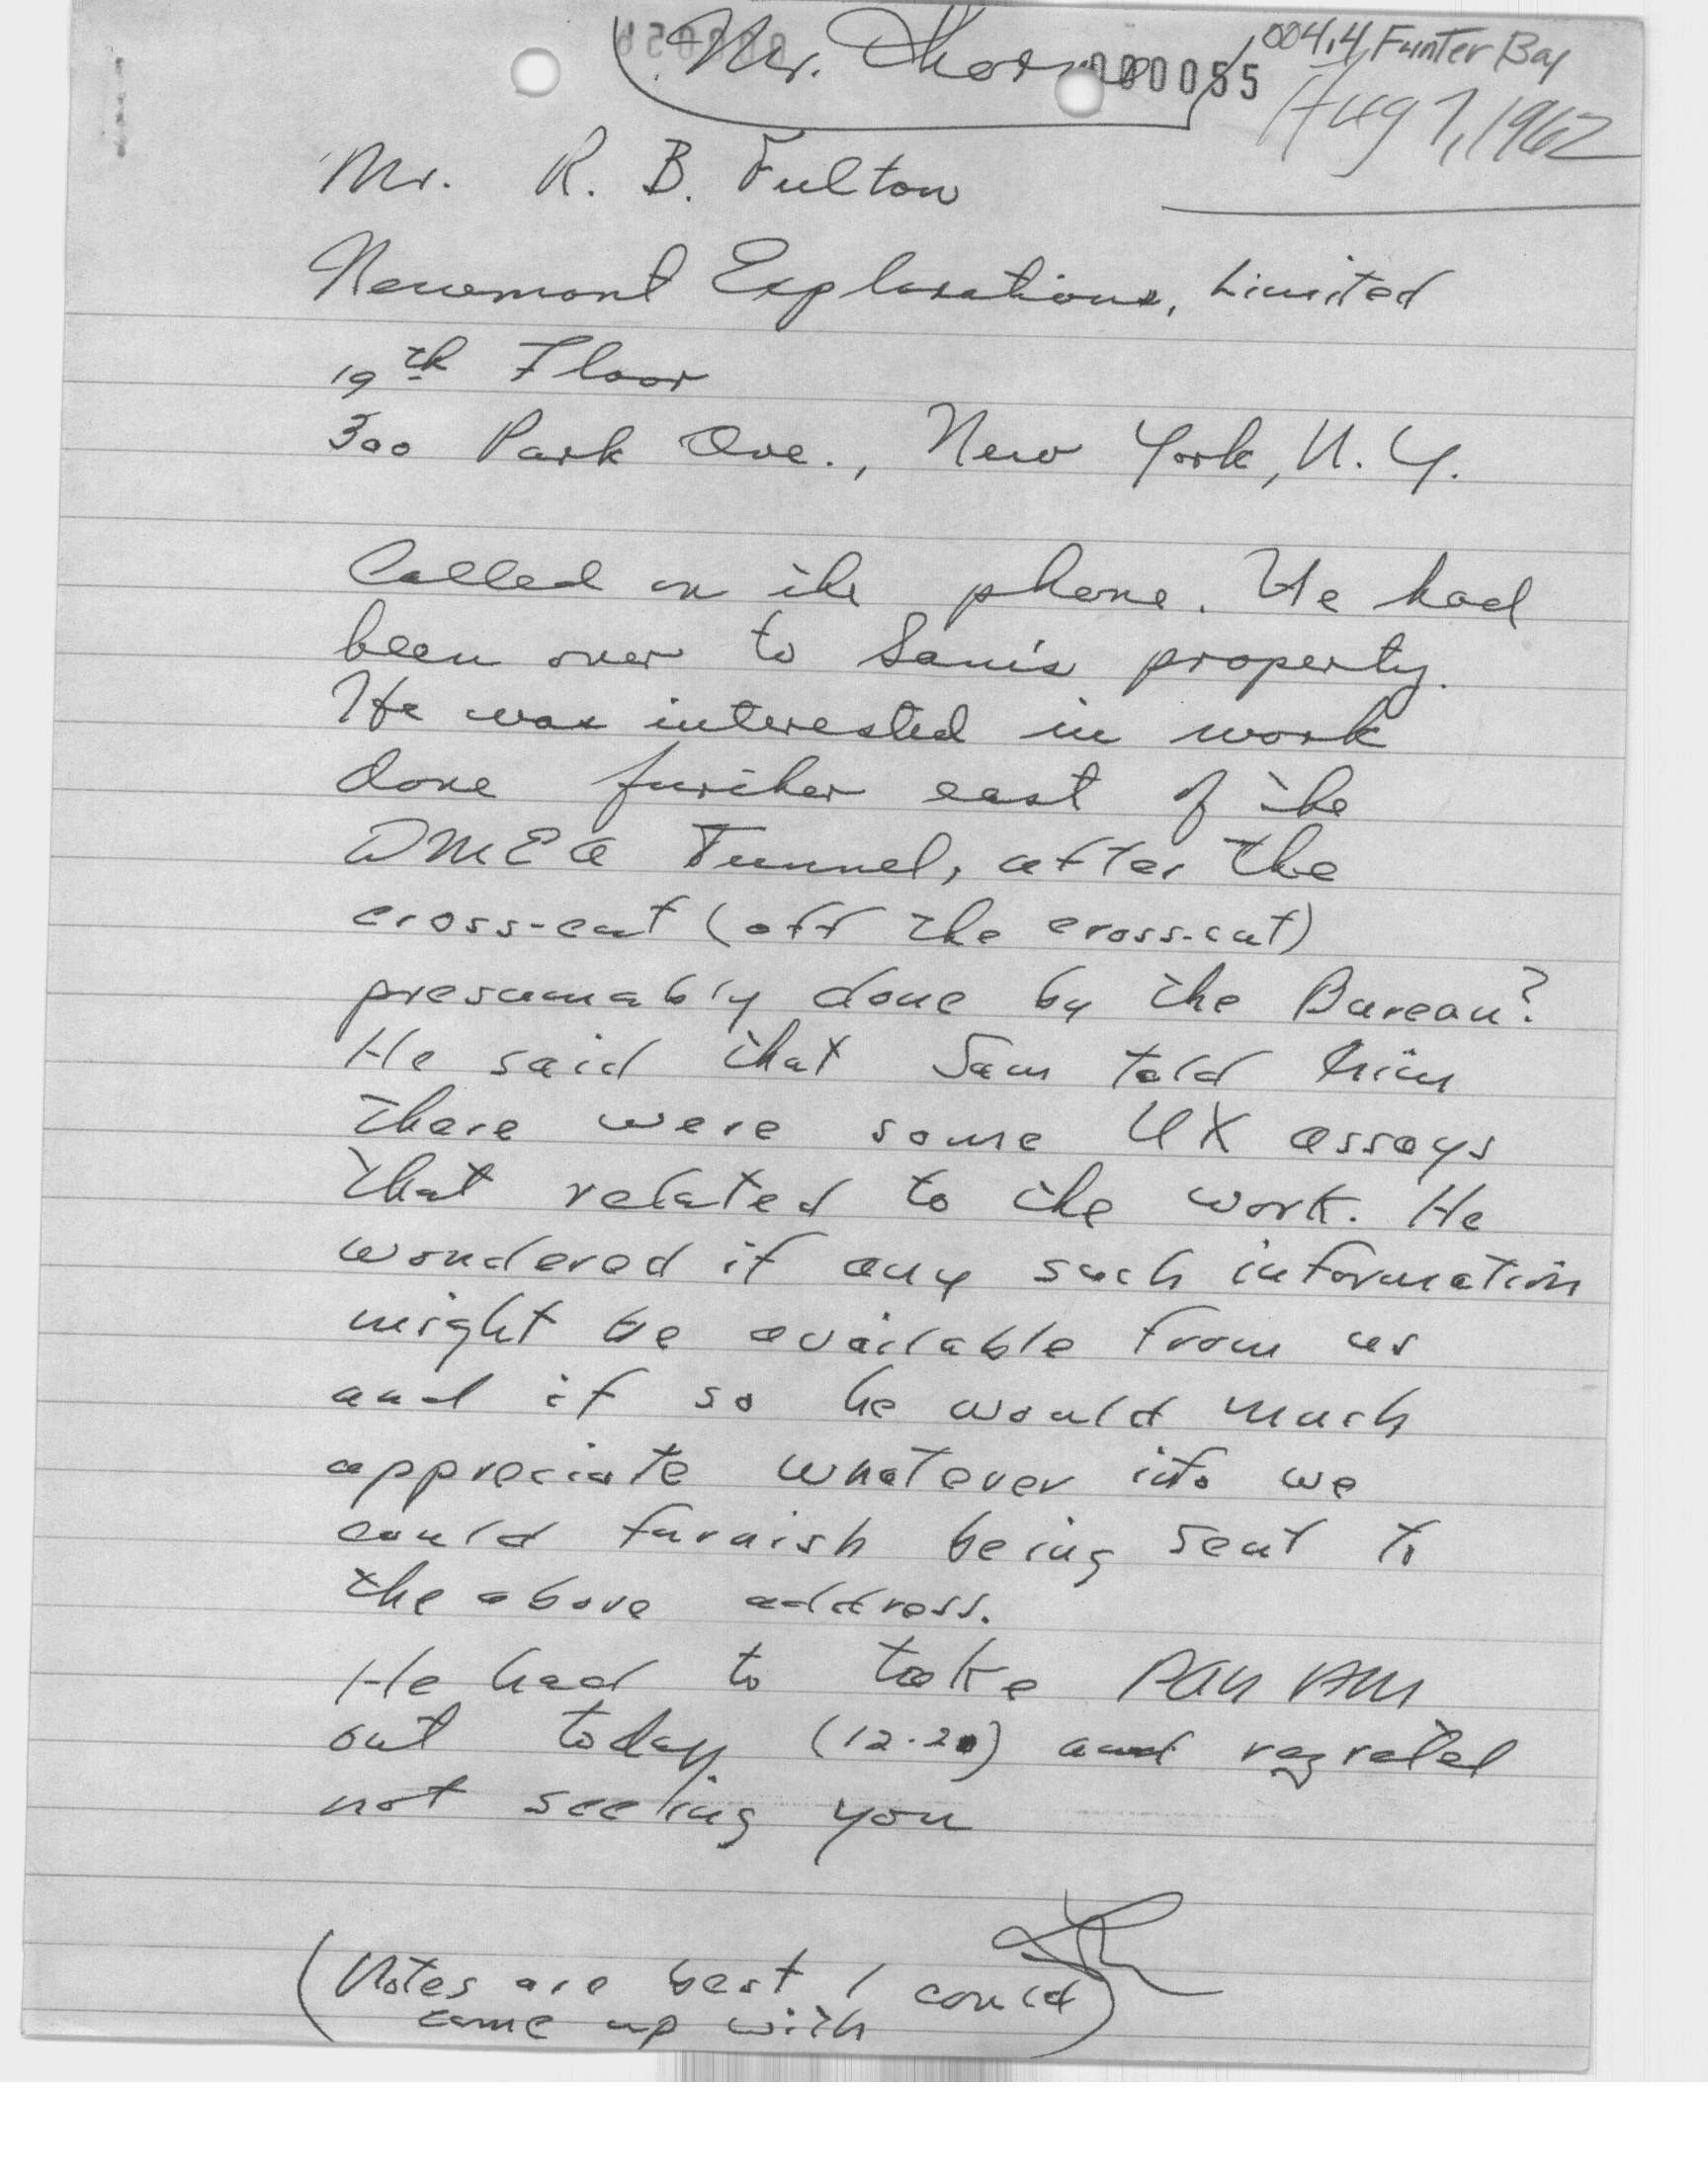 Mr.
000055
004.4, Funter Bay
Aug 7, 1962
Mr. R. B. Fulton
Newmont Explorations, Limited
19th Floor
300 Park Ave., New York, N.Y.
Called on the phone. He had
been over to Sam's property.
He was interested in work
done further east of the
DMEA Tunnel, after the
cross-cut (off the cross-cut)
presumably done by the Bureau?
He said that Sam told him
there were some UX assays
that related to the work. He
wondered if any such information
might be available from us
and if so he would much
appreciate whatever info we
could furnish being sent to
the above address.
He had to take PAN AM
out today (12.20) and regreted
not seeing you
(Notes are best I could
come up with)